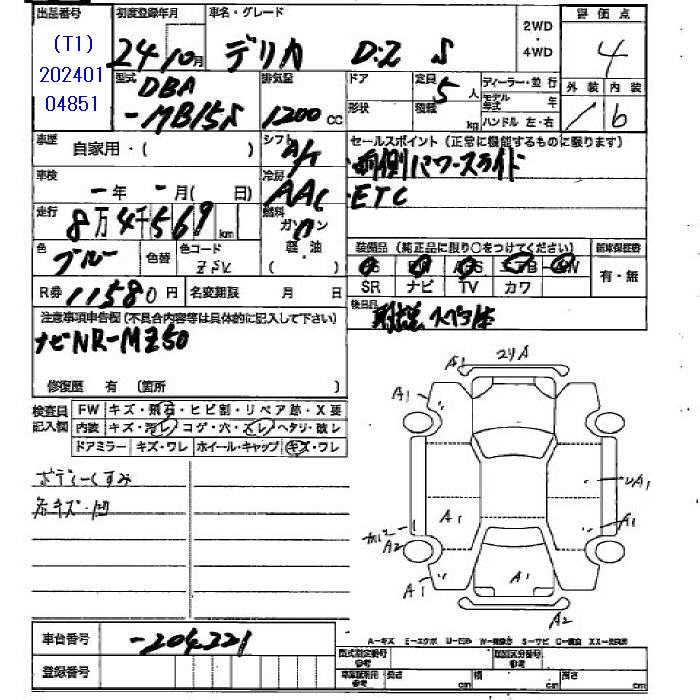 出品番号 初度登録年月 車名・グレード 2WD 評価点
(T1) 24 10月 デリカ D:2 S ・ 4
202401 4WD
04851 型式 DBA 排気量 ドア 定員 5人 ディーラー・並行 外装 内装
-MB15S 1200cc 形状 積載 kg モデル年式 年 b
ハンドル 左・右
車歴 自家用・( ) シフト A/T セールスポイント(正常に機能するものに限ります)
車検 -年 -月( 日) 冷房 AAC 両側パワースライド
走行 8万4千569km 燃料 ガソリン ETC
色 ブルー 色替 色コード ZJV 軽・油 ( ) 装備品(純正品に限り○をつけてください) 新車保証書
有・無
R券 11580円 名変期限 月 日 SR ナビ TV カワ
注意事項申告欄(不具合内容等は具体的に記入して下さい) 後日品
ナビNR-MZ50
修復歴 有(箇所 )
検査員 FW キズ・飛石・ヒビ割・リペア跡・X要
記入欄 内装 キズ・汚レ・コゲ・穴・スレ・ヘタリ・破レ
ドアミラー キズ・ワレ ホイール・キャップ キズ・ワレ
ボディーくすみ
各キズ・凹
A1 24A
A1
UA1
A1 A1
A2
A1 A1
A2
A-キズ E-エクボ U-凹み
車台番号 -204321
登録番号
型式指定番号 参考 類別区分番号 参考
参考 長さ cm 幅 cm 高さ cm